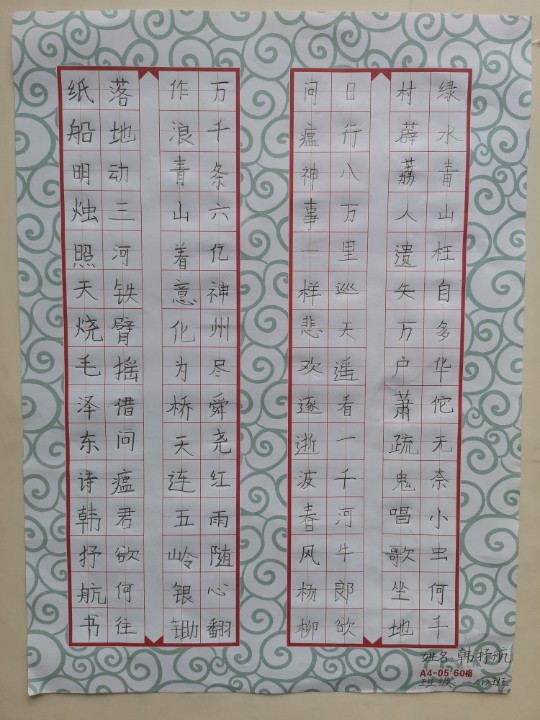 绿水青山枉自多华佗无奈小虫何千
村薜荔人遗矢万户萧疏鬼唱歌坐地
日行八万里巡天遥看一千河牛郎欲
问瘟神事一样悲欢逐逝波春风杨柳
万千条六亿神州尽舜尧红雨随心翻
作浪青山着意化为桥天连五岭银锄
落地动三河铁臂摇借问瘟君欲何往
纸船明烛照天烧毛泽东诗韩抒航书
姓名 韩抒航
A4-05 60格
班级